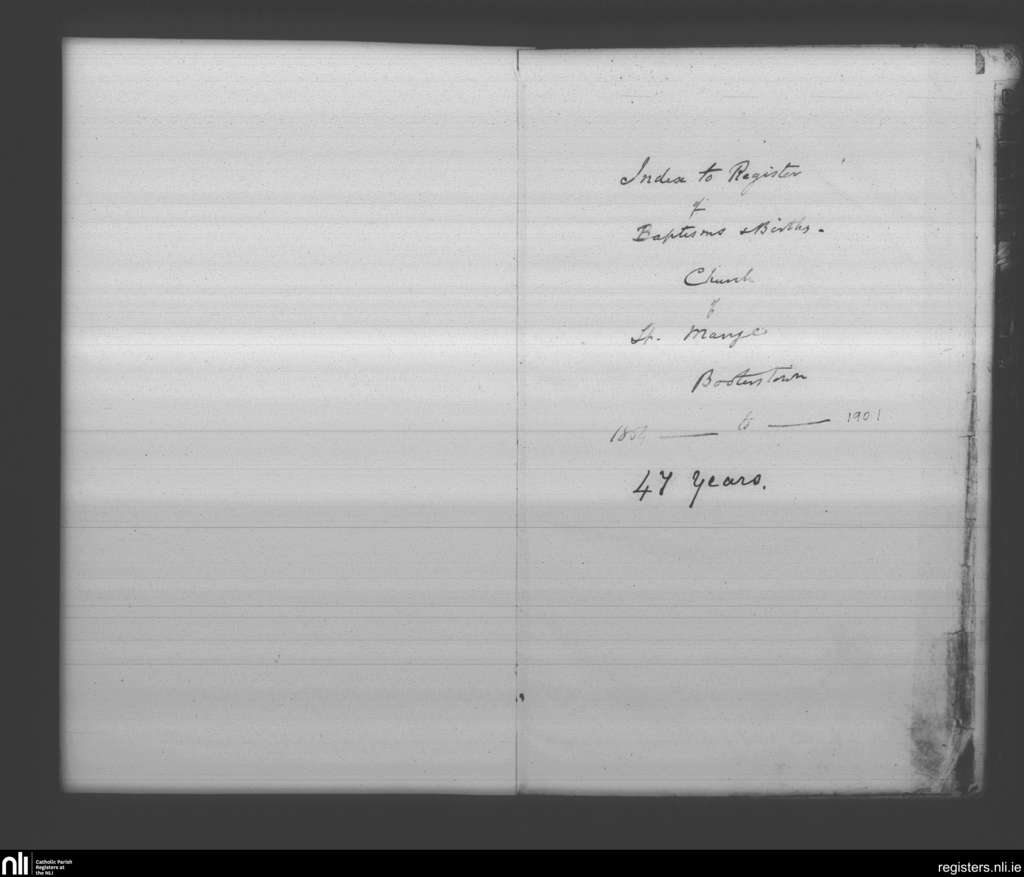 Index to Register
of
Baptisms & Births.
Church
of
St. Marys
Booterstown
1854 — to — 1901
47 Years.
nli
Catholic Parish
Registers at
the NLI
registers.nli.ie